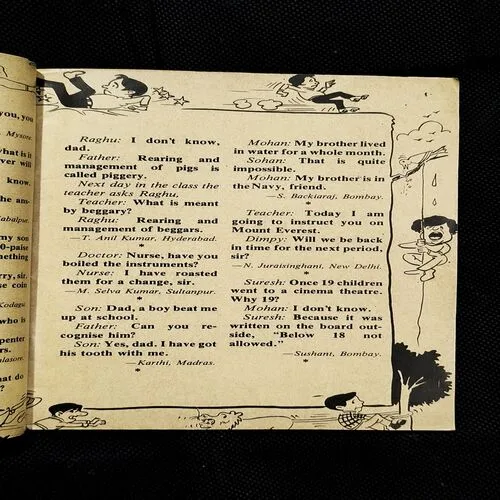 you, you
Mysore.
what is it
ver will
know.
the am-
Jabalpur.
my son
0-paise
mething
rry, sir.
se coin
Kodagu
who is
penter
rs.
alasore.
at do
?
Raghu: I don't know,
dad.
Father: Rearing and
management of pigs is
called piggery.
Next day in the class the
teacher asks Raghu.
Teacher: What is meant
by beggary?
Raghu: Rearing and
management of beggars.
—T. Anil Kumar, Hyderabad.
*
Doctor: Nurse, have you
boiled the instruments?
Nurse: I have roasted
them for a change, sir.
— M. Selva Kumar, Sultanpur.
*
Son: Dad, a boy beat me
up at school.
Father: Can you re-
cognise him?
Son: Yes, dad. I have got
his tooth with me.
—Karthi, Madras.
*
Mohan: My brother lived
in water for a whole month.
Sohan: That is quite
impossible.
Mohan: My brother is in
the Navy, friend.
—S. Backiaraj, Bombay.
*
Teacher: Today I am
going to instruct you on
Mount Everest.
Dimpy: Will we be back
in time for the next period,
sir?
—N. Juraisinghani, New Delhi.
*
Suresh: Once 19 children
went to a cinema theatre.
Why 19?
Mohan: I don't know.
Suresh: Because it was
written on the board out-
side, "Below 18 not
allowed."
—Sushant, Bombay.
*